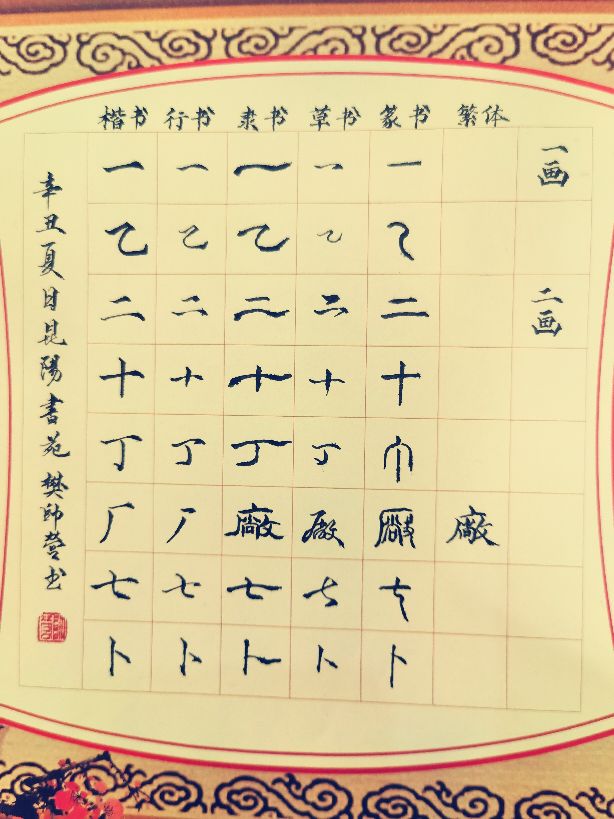 楷书 行书 隶书 草书 篆书 繁体
一 一 一 一 一 一画
乙 乙 乙 乙 乙
二 二 二 二 二 二画
十 十 十 十 十
丁 丁 丁 丁 丁
厂 厂 廠 廠 廠 廠
七 七 七 七 七
卜 卜 卜 卜 卜
辛丑夏日昆陽書苑樊帅营书